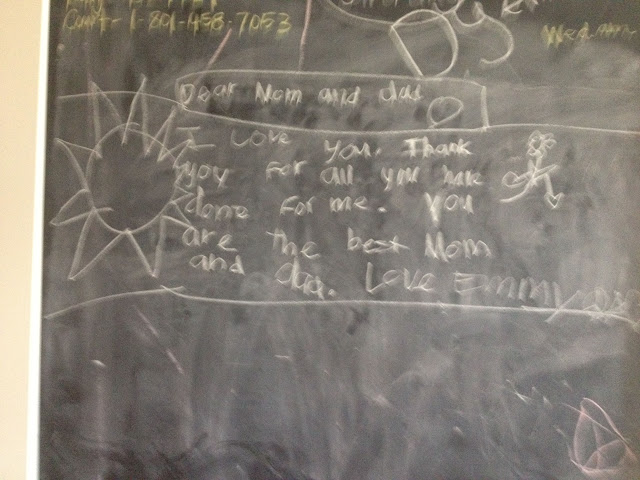 Court-1-801-458-7053
Dear Mom and dad
I Love you. Thank
you For all you have
done For me. you
are the best Mom
and dad. Love Emmy